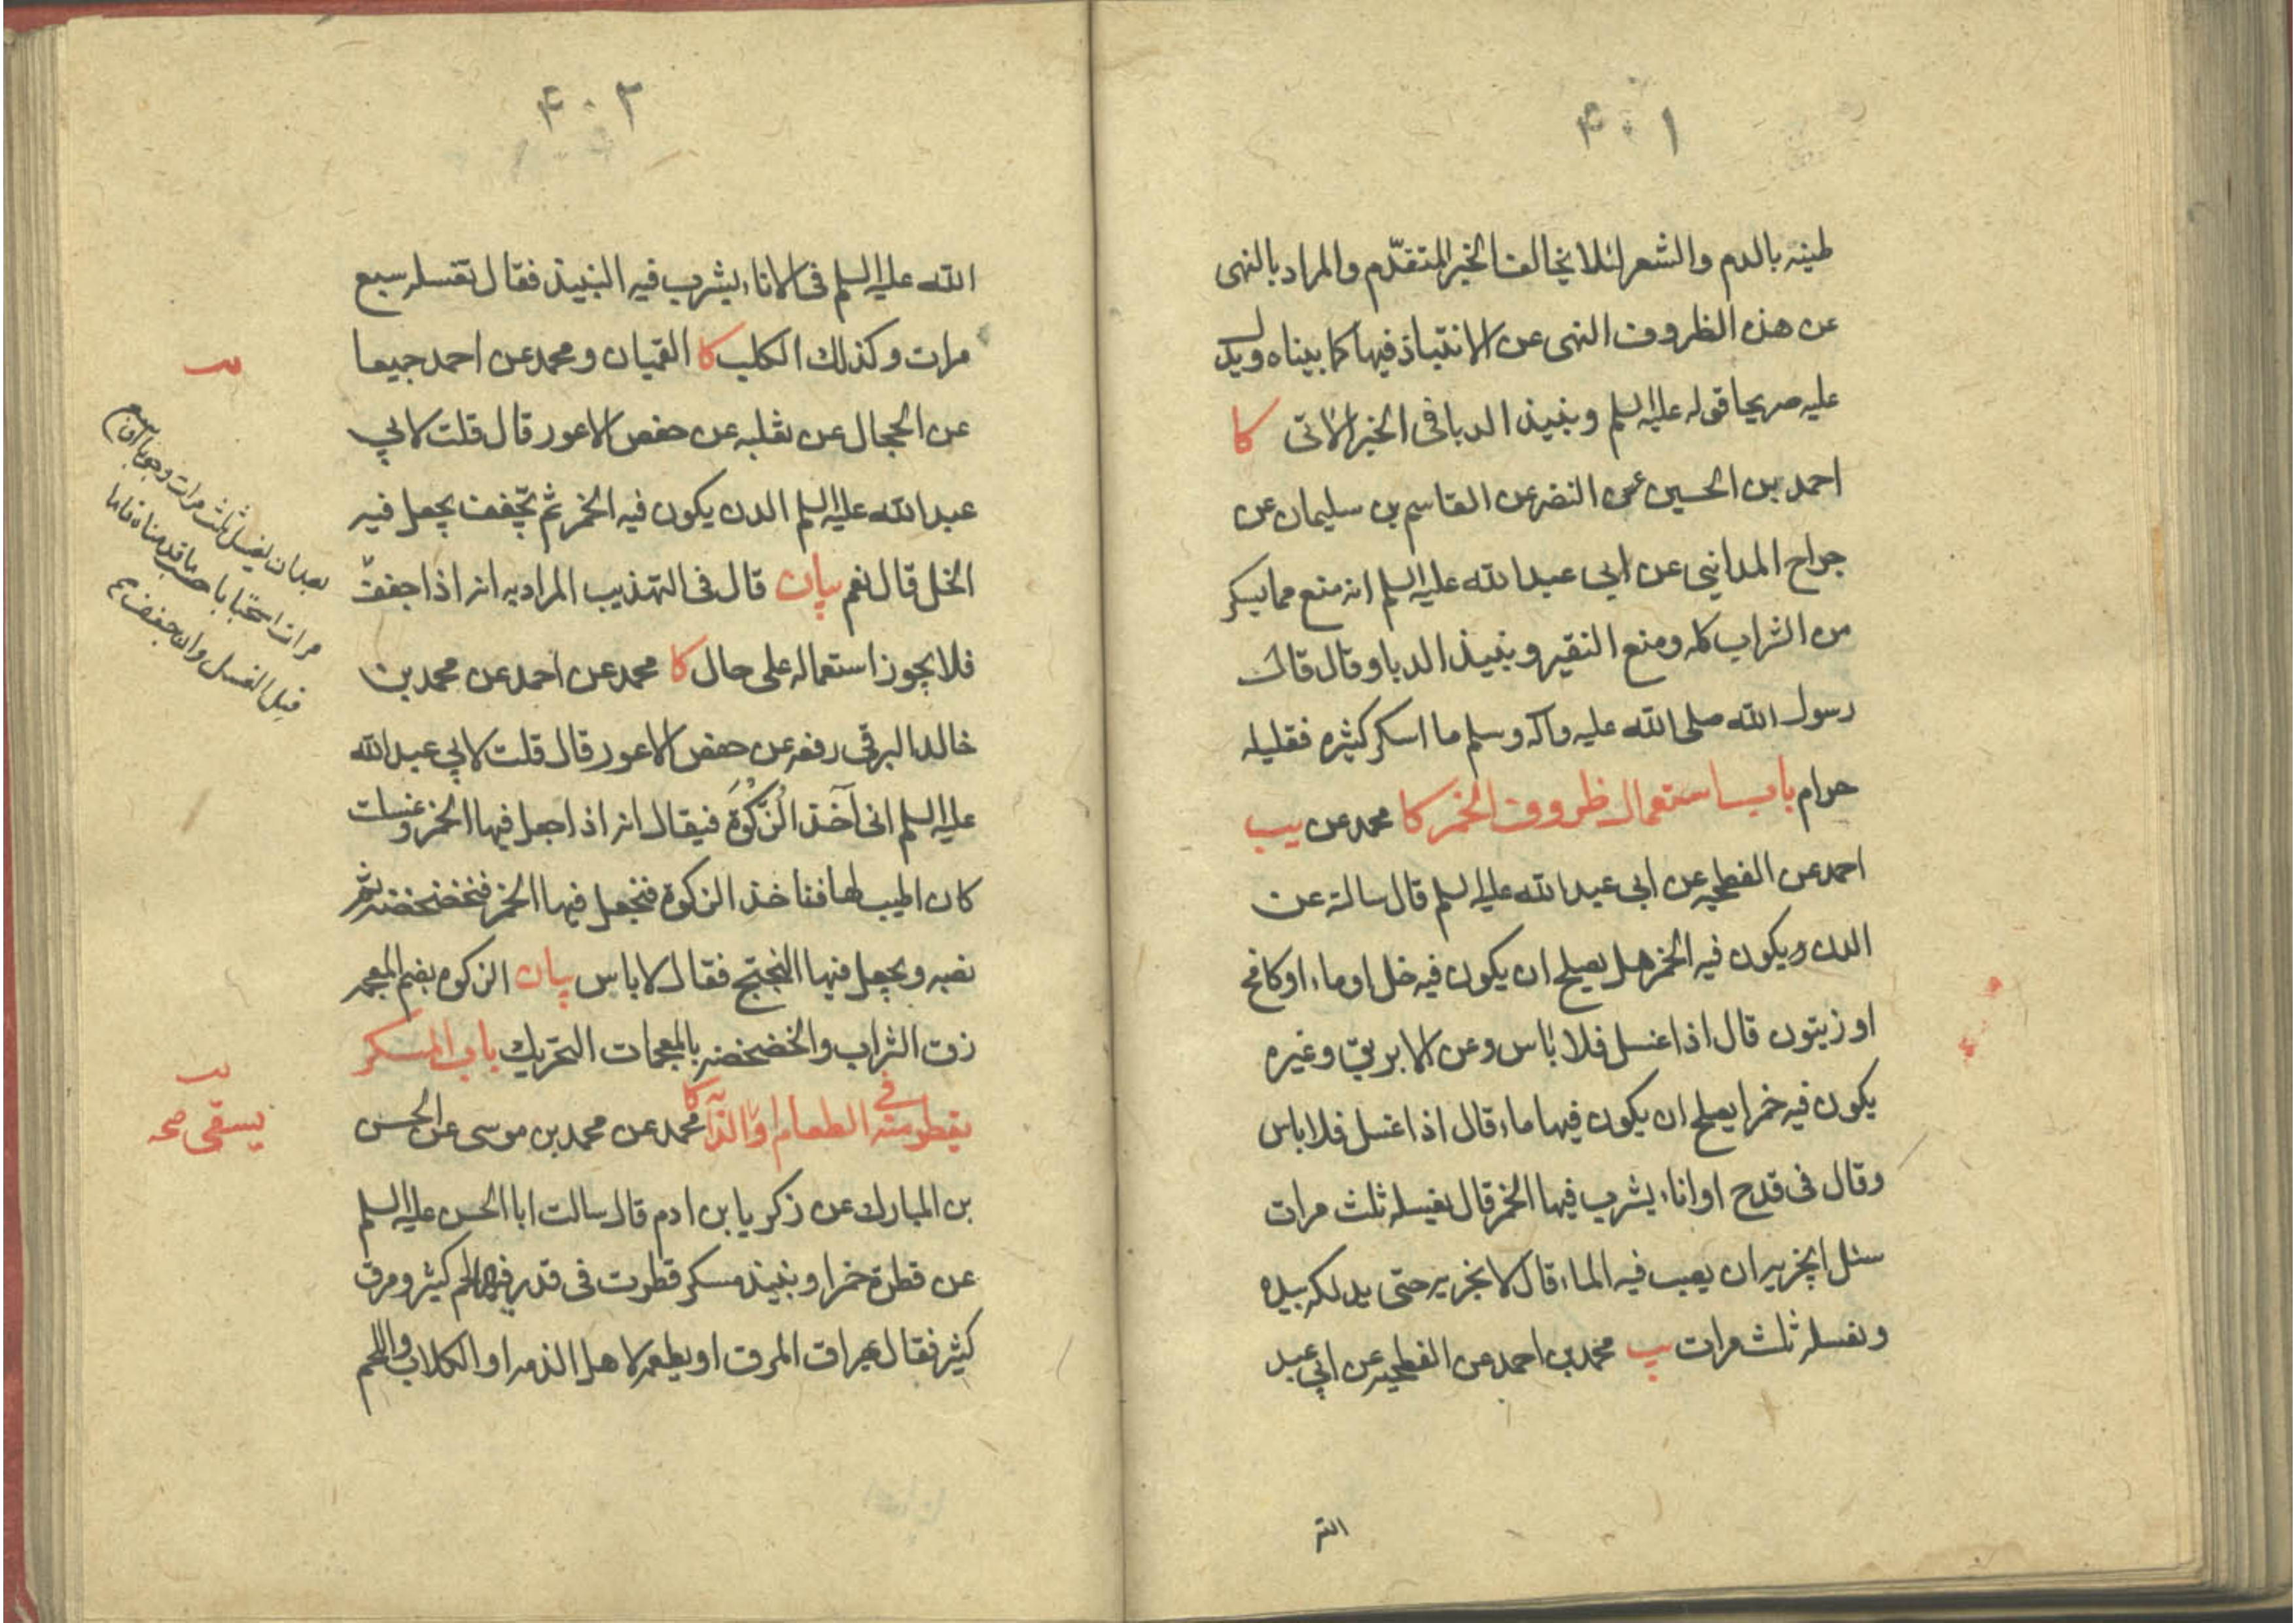 ۴۰۱
طينه بالدم والشعر لئلا يخالف الخبر المتقدّم والمراد بالنهى
عن هذه الظروف النهى عن الانتباذ فيها كما بيناه ويدل
عليه صريحا قوله عليه السلم ونبيذ الدبا فى الخبر الاتى كا
احمد بن الحسين عن النضر عن القاسم بن سليمان عن
جراح المدايني عن ابي عبد الله عليه السلم انه منع مما يسكر
من الشراب كله ومنع النقير ونبيذ الدبا وقال قال
رسول الله صلى الله عليه وآله وسلم ما اسكر كثيره فقليله
حرام باب استعمال ظروف الخمر كا محمد عن يب
احمد عن الفطحيه عن ابي عبد الله عليه السلم قال سالته عن
الدن ويكون فيه الخمر هل يصلح ان يكون فيه خل او ماء او كامخ
او زيتون قال اذا غسل فلا باس وعن الابريق وغيره
يكون فيه خمر ايصلح ان يكون فيها ماء قال اذا غسل فلا باس
وقال فى قدح او اناء يشرب فيها الخمر قال يغسله ثلث مرات
سئل ايجزيه ان يصب فيه الماء قال لا يجزيه حتى يدلكه بيده
ونغسله ثلث مرات يب محمد بن احمد عن الفطحيه عن ابي عبد
۴۰۲
الله عليه السلم فى الاناء يشرب فيه النبيذ فقال تغسله سبع
مرات وكذلك الكلب كا القميان ومحمد عن احمد جميعا
عن الحجال عن ثعلبه عن حفص الاعور قال قلت لابي
عبد الله عليه السلم الدن يكون فيه الخمر ثم يجفف يجعل فيه
الخل قال نعم بيان قال فى التهذيب المراد به انه اذا جفف
فلا يجوز استعماله على حال كا محمد عن احمد عن محمد بن
خالد البرقى رفعه عن حفص الاعور قال قلت لابي عبد الله
عليه السلم انى آخذ الزُكْوَةَ فيقال انه اذا جعل فيها الخمر وغسلت
كان اطيب لها فناخذ الزكوة فنجعل فيها الخمر فنخضخضه ثم
نصبه ويجعل فيها البختج فقال لا باس بيان الزكوه بضم المعجمه
زق الشراب والخضخضه بالمعجمات التحريك باب المسكر
يقطر منه فى الطعام والدّابه كا محمد عن محمد بن موسى عن الحسن
بن المبارك عن زكريا بن ادم قال سالت ابا الحسن عليه السلم
عن قطرة خمر او نبيذ مسكر قطرت فى قدر فيها لحم كثير ومرق
كثير فقال يهراق المرق او يطعمه لاهل الذمه او الكلاب واللحم
يب
بعد ان يغسل ثلث مرات وجوبا او سبع
مرات استحبابا حسب ما قدمناه فاما
قبل الغسل وان جفف
يب
يسقى صحه